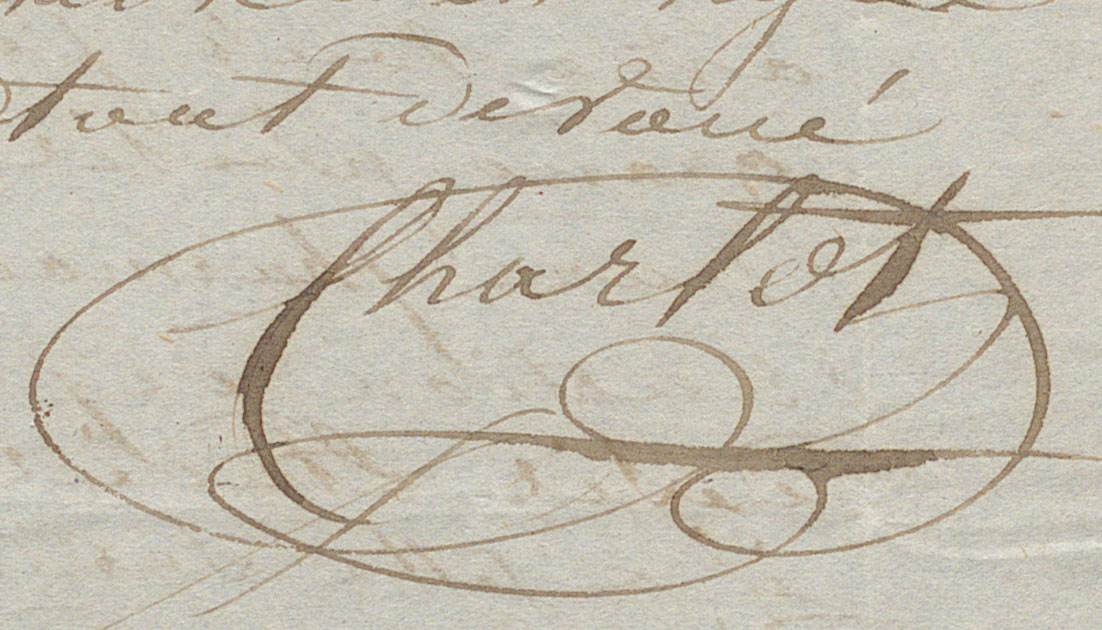 tout devoué
Chartot